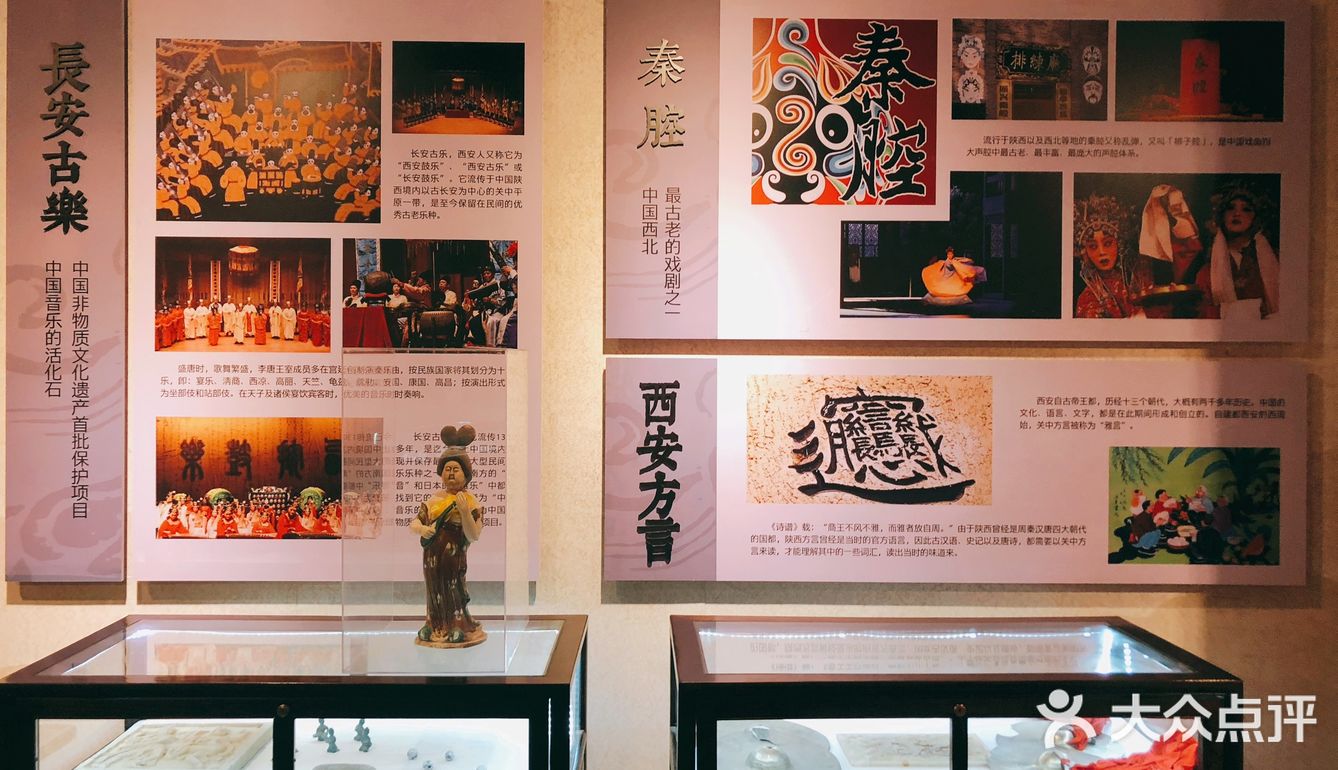 長安古樂
中国非物质文化遗产首批保护项目
中国音乐的活化石
长安古乐，西安人又称它为
“西安鼓乐”、“西安古乐”或
“长安鼓乐”。它流传于中国陕
西境内以古长安为中心的关中平
原一带，是至今保留在民间的优
秀古老乐种。
盛唐时，歌舞繁盛，李唐王室成员多在宫廷
乐曲，按民族国家将其划分为十
乐，即：宴乐、清商、西凉、高丽、天竺、龟兹、疏勒、安国、康国、高昌；按演出形式
为坐部伎和站部伎。在天子及诸侯宴饮宾客时，优美的音乐时时奏响。
长安古
流传13
多年，是迄
中国境内
现并保存最
大型民间
乐乐种之一
南方的“
音”和日本的
乐”中都
找到它的
为“中
音乐的
中国
物质
项目。
秦腔
最古老的戏剧之一
中国西北
秦腔
排練廳
秦腔
流行于陕西以及西北等地的秦腔又称乱弹，又叫「梆子腔」，是中国戏曲四
大声腔中最古老、最丰富、最庞大的声腔体系。
西安方言
西安自古帝王都，历经十三个朝代，大概有两千多年历史。中国的
文化、语言、文字，都是在此期间形成和创立的。自建都西安的西周
始，关中方言被称为“雅言”。
《诗谱》载：“商王不风不雅，而雅者放自周。”由于陕西曾经是周秦汉唐四大朝代
的国都，陕西方言曾经是当时的官方语言，因此古汉语、史记以及唐诗，都需要以关中方
言来读，才能理解其中的一些词汇，读出当时的味道来。
大众点评